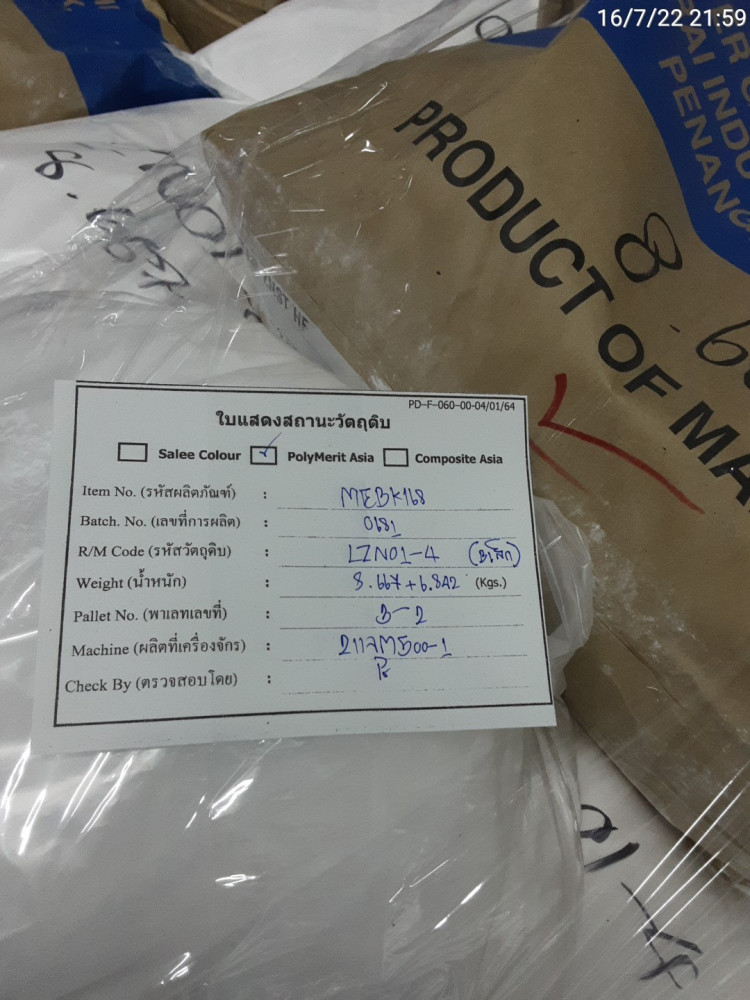 16/7/22 21:59
PENANG
PRODUCT OF MA
8.667
PD-F-060-00-04/01/64
ใบแสดงสถานะวัตถุดิบ
Salee Colour PolyMerit Asia Composite Asia
Item No. (รหัสผลิตภัณฑ์) : MEBK168
Batch. No. (เลขที่การผลิต) : 0681
R/M Code (รหัสวัตถุดิบ) : LZN01-4
Weight (น้ำหนัก) : 8.667+6.842 (Kgs.)
Pallet No. (พาเลทเลขที่) : 3-2
Machine (ผลิตที่เครื่องจักร) :
Check By (ตรวจสอบโดย) :